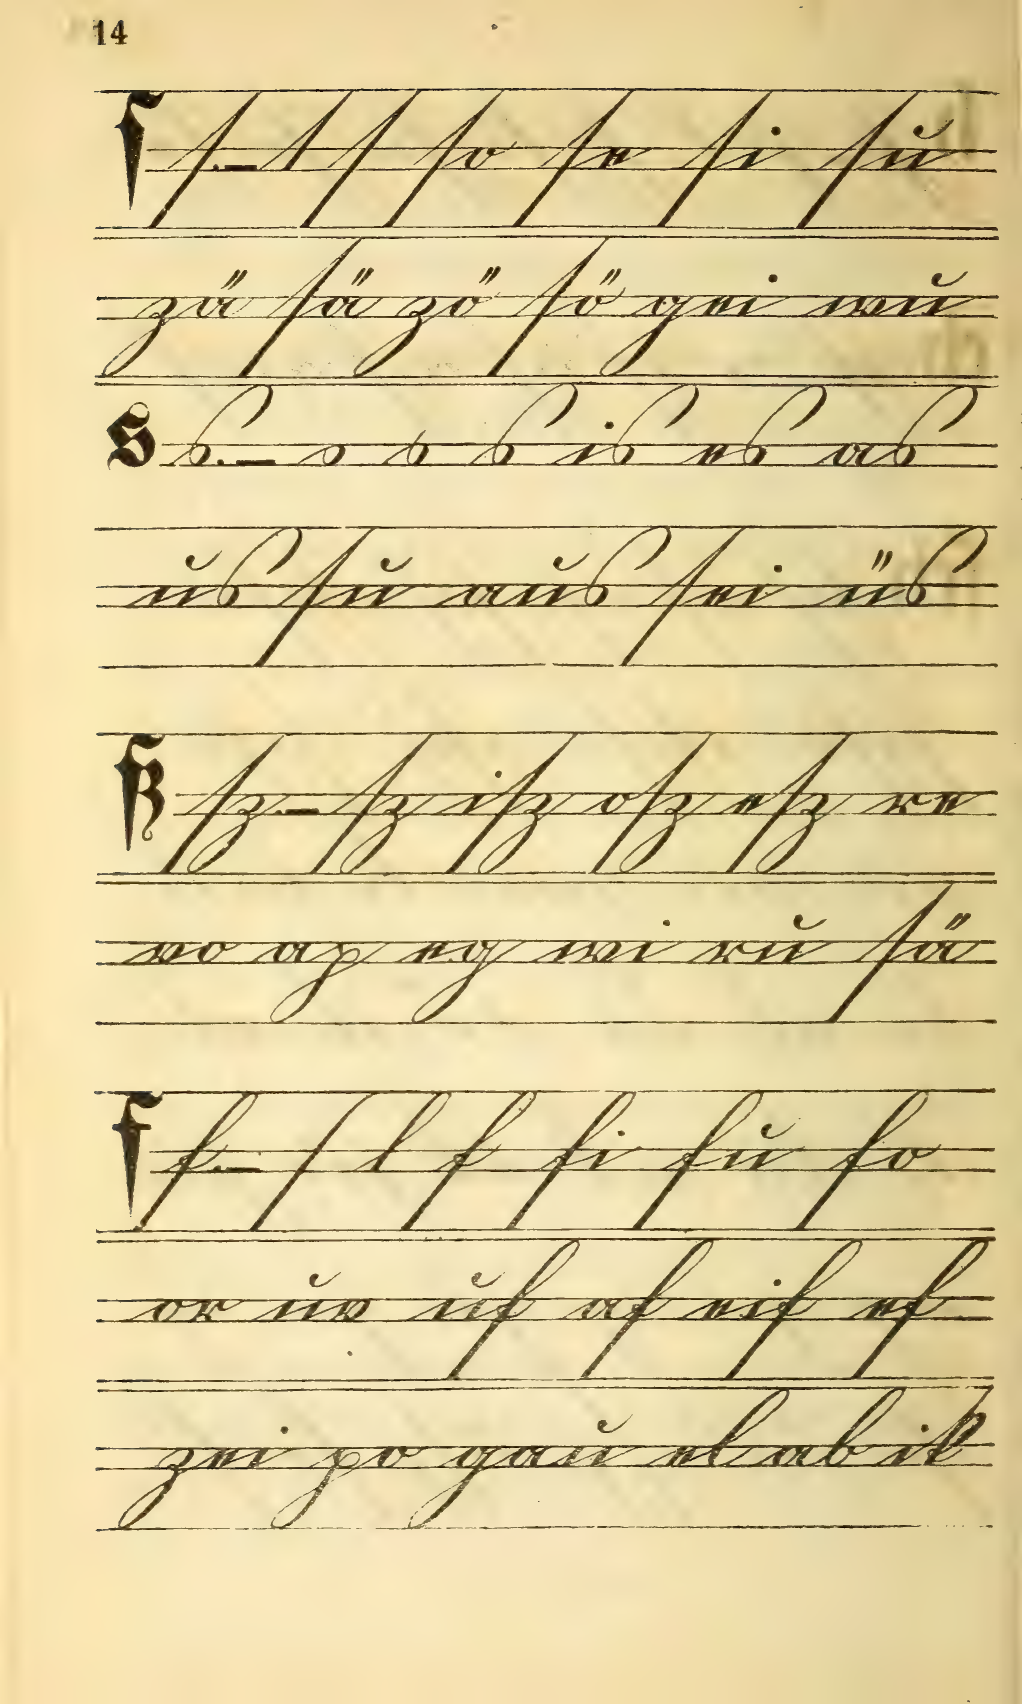 14
ſ ſ.— ſ ſ ſo ſe ſi ſu
zä ſä zö ſö gei wu
s s.— s s s is es as
us ſu aus ſei üs
ß ß.— ß iß oß eß re
vo ap eg wi ru ſä
f f.— ſ l f fi fu fo
or uv uf af eif ef
zei po gau el ab ik